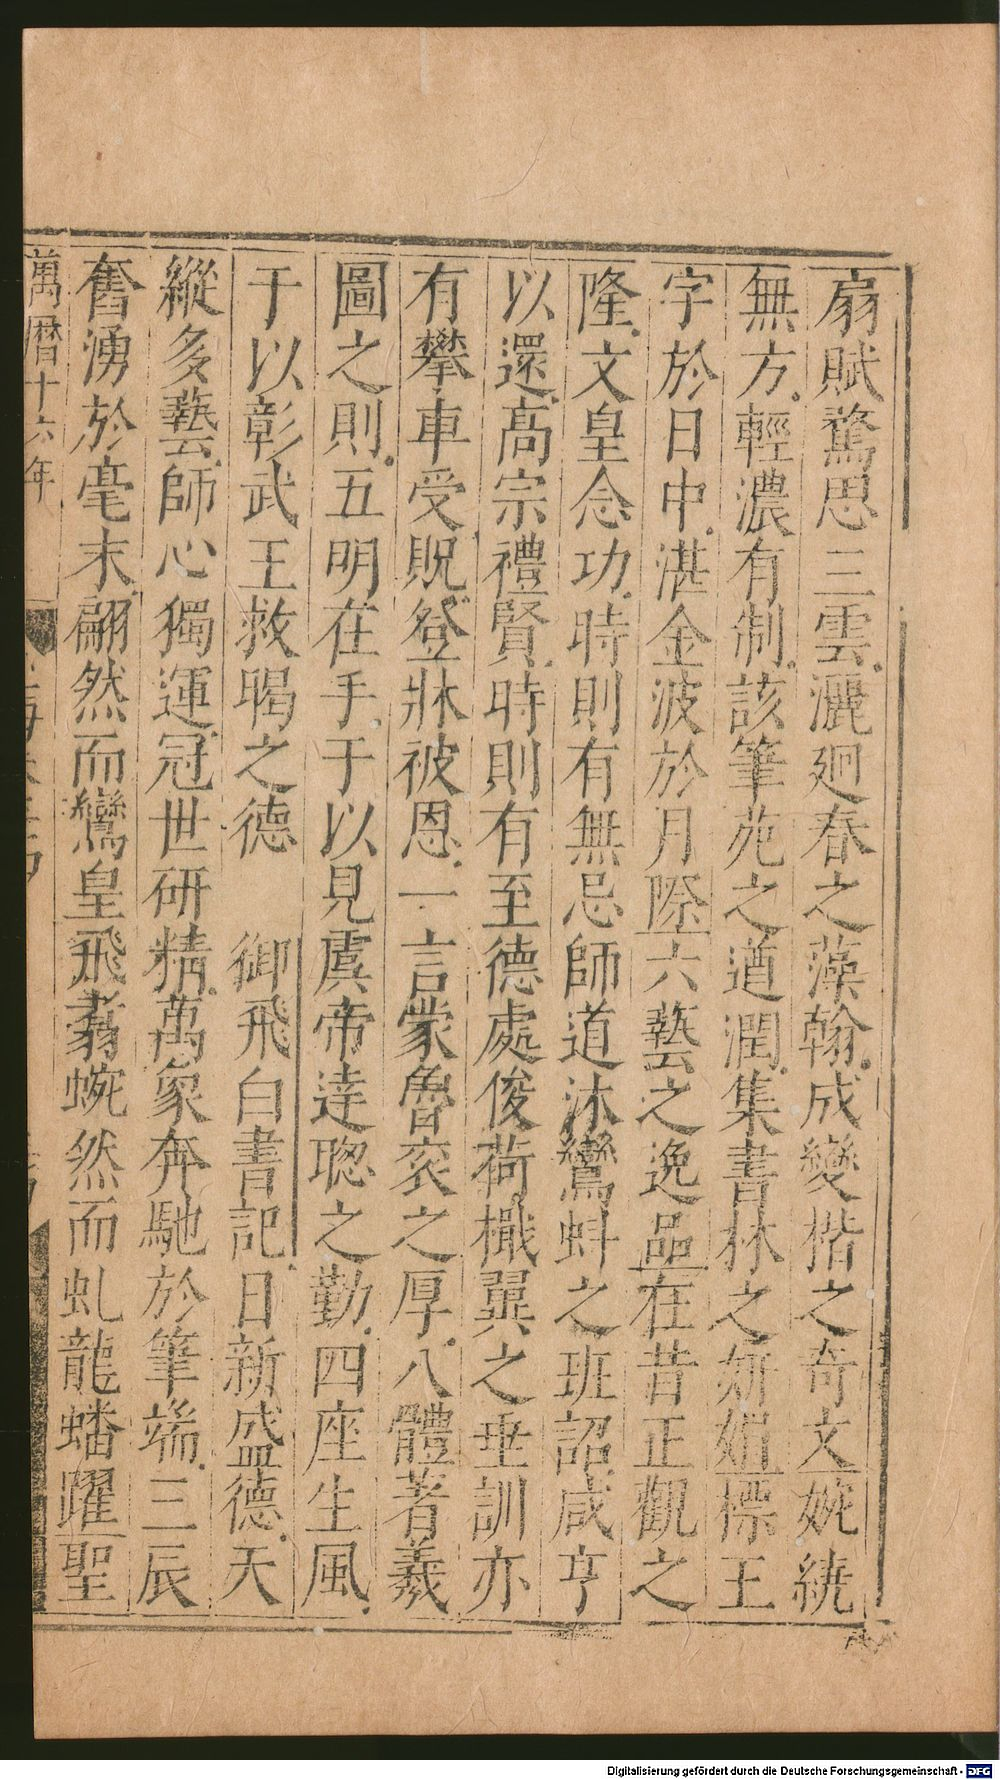 扇賦騖思三雲灑廻春之藻翰成變楷之奇文婉繞
無方輕濃有制該筆苑之遒潤集書林之妍媚標王
字於日中湛金波於月際六藝之逸品在昔正觀之
隆文皇念功時則有無忌師道沐鸞蚪之班詔咸亨
以還高宗禮賢時則有至德處俊荷檝翼之垂訓亦
有攀車受貺登牀被恩一言蒙魯袞之厚八體著羲
圖之則五明在手于以見虞帝達聦之勤四座生風
于以彰武王救暍之德 御飛白書記日新盛德天
縱多藝師心獨運冠世研精萬象奔馳於筆端三辰
奮湧於毫末翩然而鸞皇飛翥蜿然而虬龍蟠躍聖
萬曆十六年
Digitalisierung gefördert durch die Deutsche Forschungsgemeinschaft - DFG